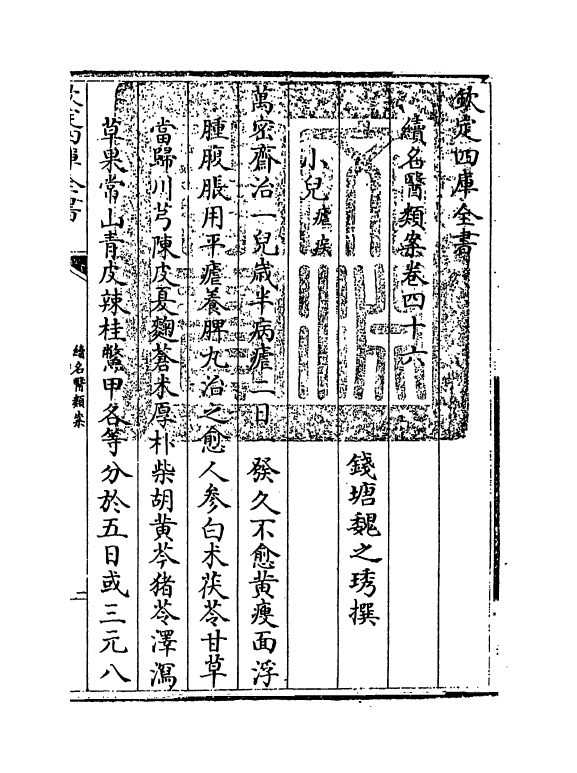 欽定四庫全書
續名醫類案卷四十六
錢塘魏之琇撰
小兒瘧疾
萬密齋治一兒歲半病瘧二日一發久不愈黃瘦面浮
腫腹脹用平瘧養脾丸治之愈人參白朮茯苓甘草
當歸川芎陳皮夏麴蒼朮厚朴柴胡黃芩猪苓澤瀉
草果常山青皮辣桂鱉甲各等分於五日或三元八
欽定四庫全書
續名醫類案